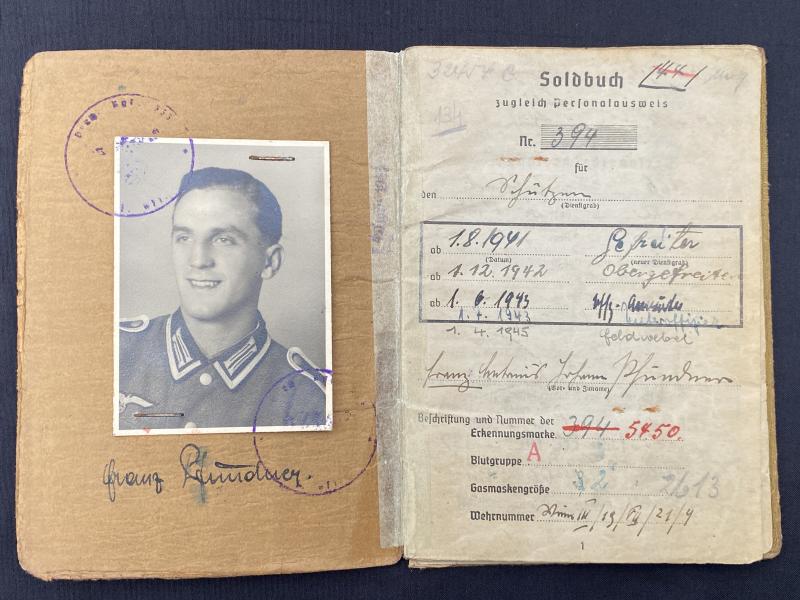 franz Pfundner.
Soldbuch
zugleich Personalausweis
Nr. 394
für
den Schützen
(Dienstgrad)
ab 1.8.1941 Gefreiter
(Datum) (neuer Dienstgrad)
ab 1.12.1942 Obergefreiter
ab 1. 6. 1943 Uffz-
1. 4. 1943
1. 4. 1945 feldwebel
franz Johann Pfundner
(Vor- und Zuname)
Beschriftung und Nummer der
Erkennungsmarke 394 5450.
Blutgruppe A
Gasmaskengröße 2 2613
Wehrnummer Wien III/19/ /21/4
1